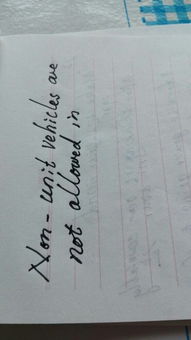 Non-unit vehicles are
not allowed in